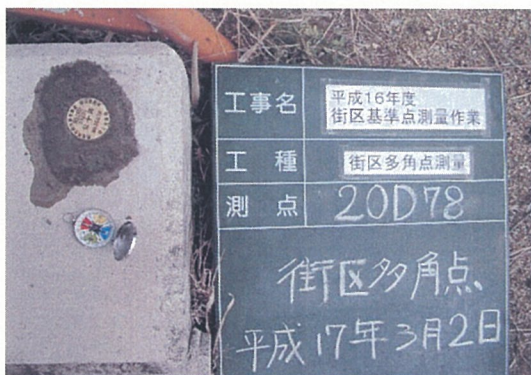 工事名
平成16年度
街区基準点測量作業
工種
街区多角点測量
測点
20D78
街区多角点
平成17年3月2日